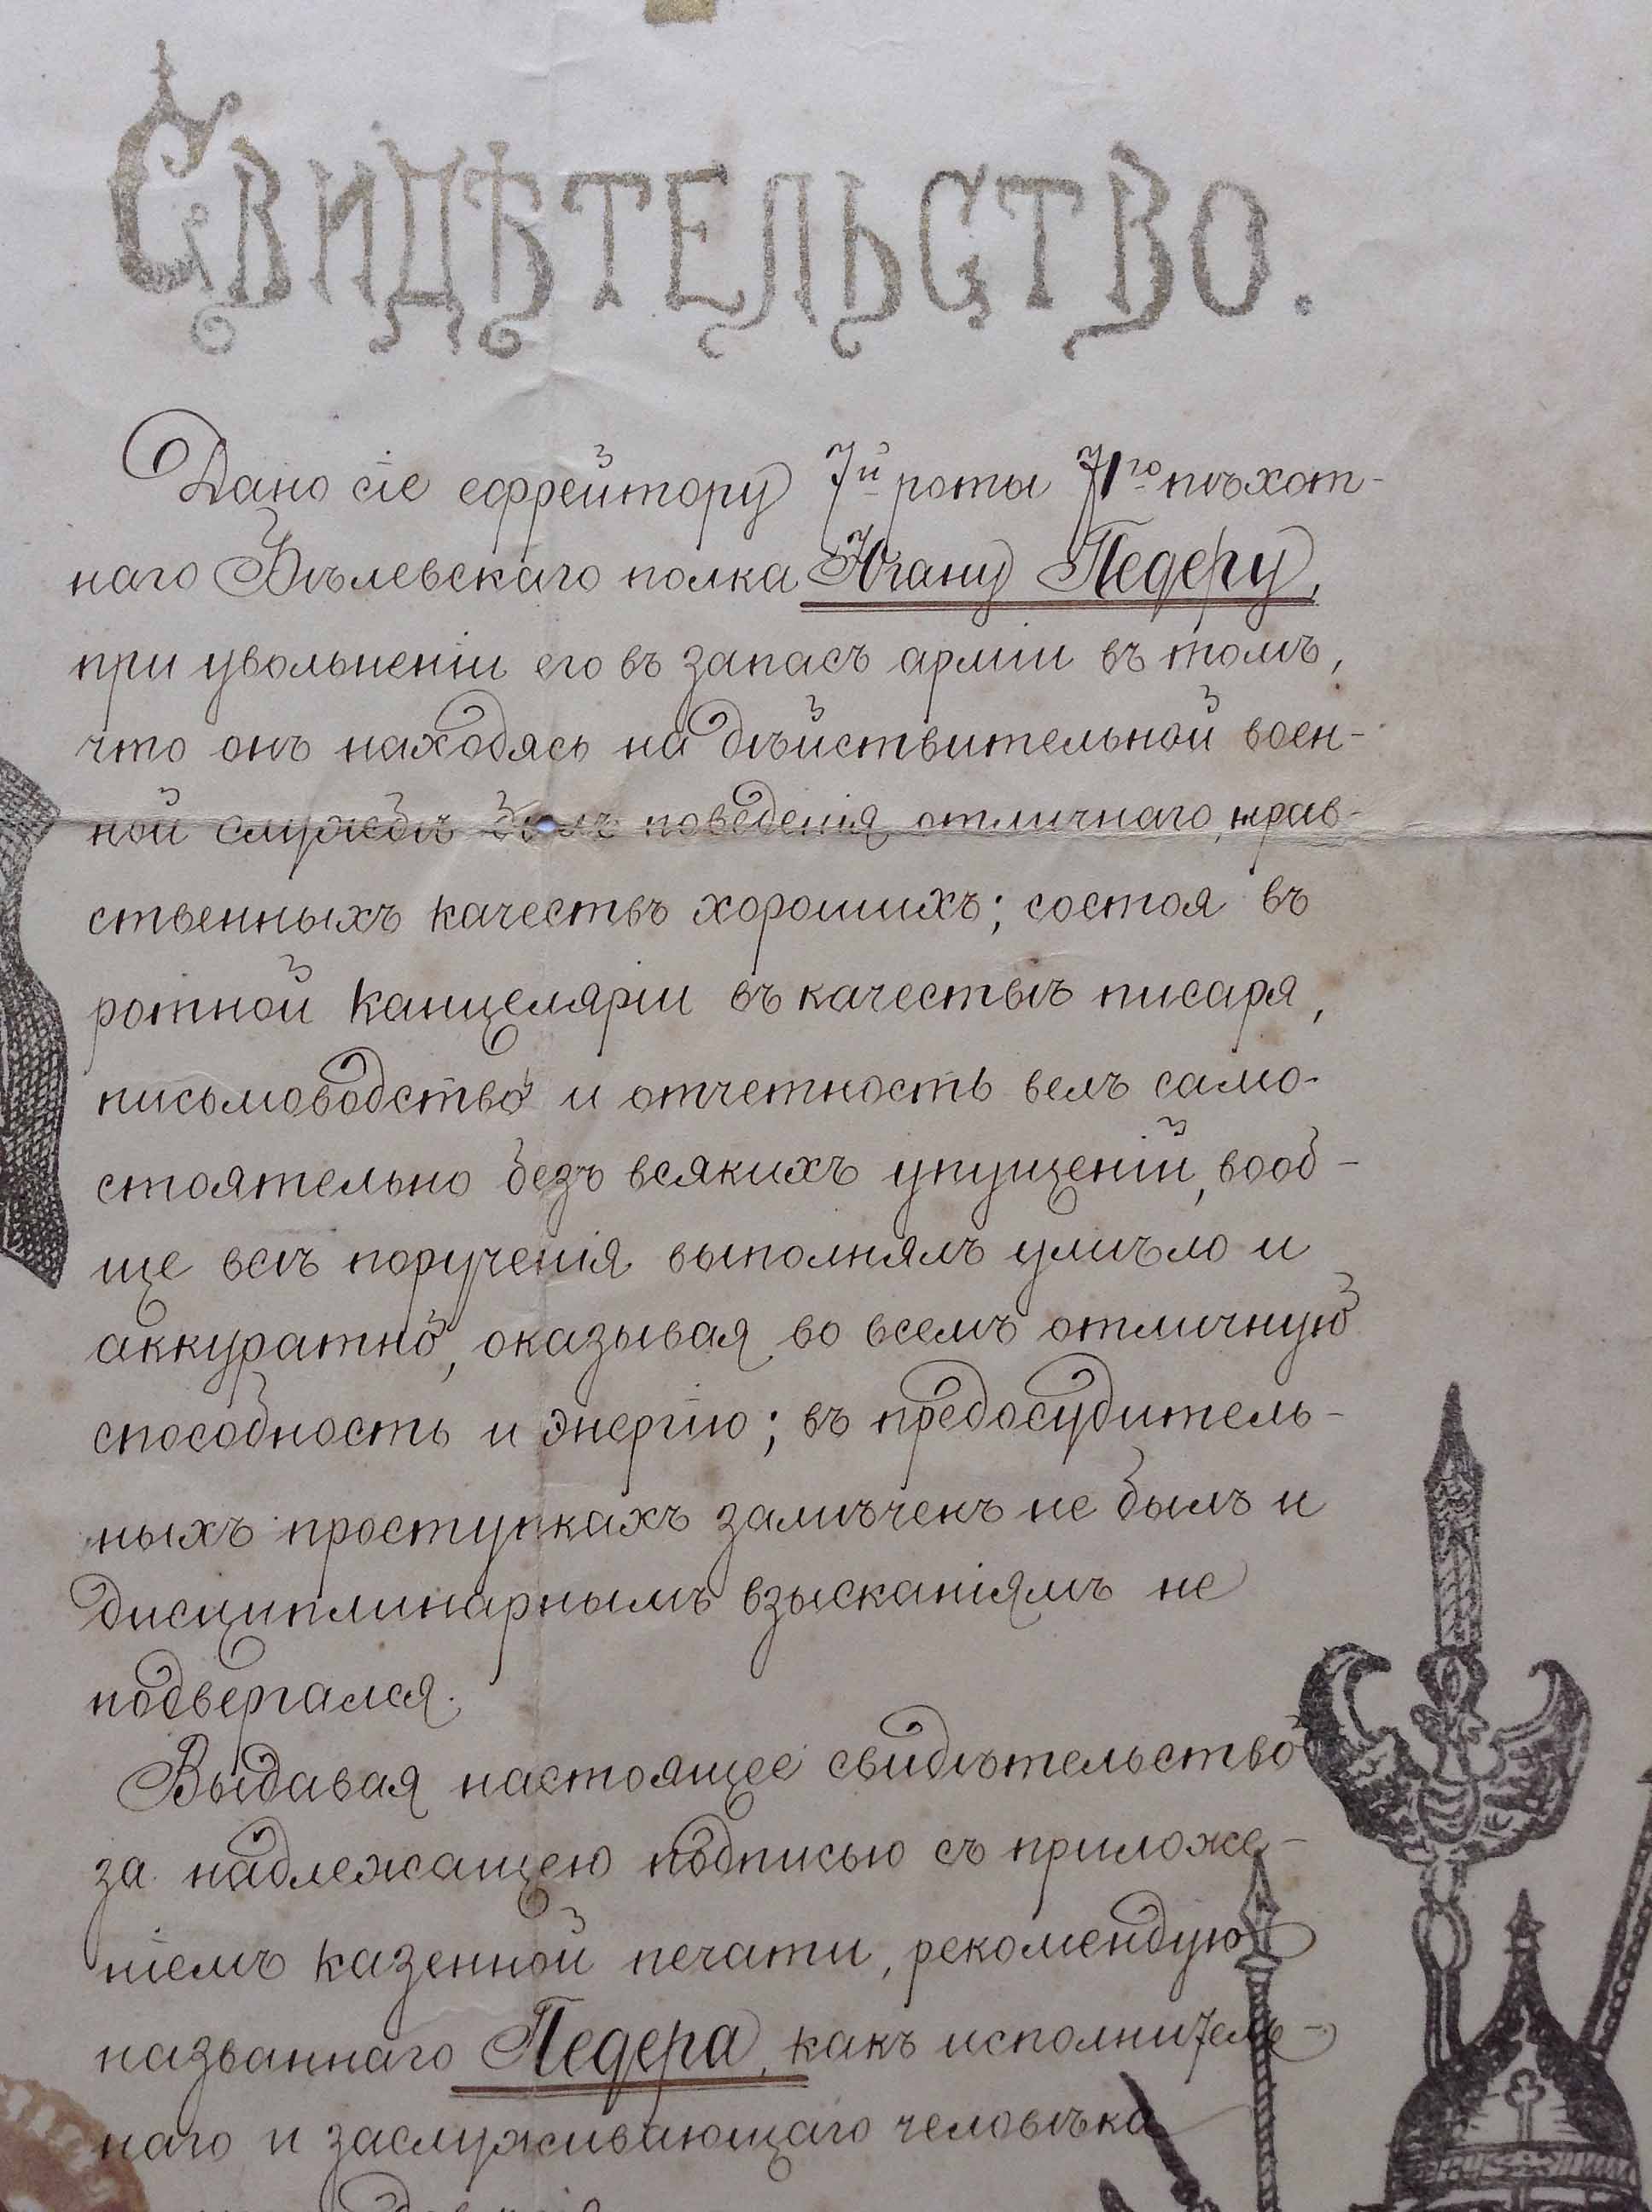 Свидѣтельство.
Дано сіе ефрейтору 7й роты 71го пѣхот-
наго Бѣлевскаго полка Югану Педеру,
при увольненіи его въ запасъ арміи въ томъ,
что онъ находясь на дѣйствительной воен-
ной службѣ былъ поведенія отличнаго, нрав-
ственныхъ качествъ хорошихъ; состоя въ
ротной канцеляріи въ качествѣ писаря,
письмоводство и отчетность велъ само-
стоятельно безъ всякихъ упущеній, вооб-
ще всѣ порученія выполнялъ умѣло и
аккуратно, оказывая во всемъ отличную
способность и энергію; въ предосудитель-
ныхъ проступкахъ замѣченъ не былъ и
дисциплинарнымъ взысканіямъ не
подвергался.
Выдавая настоящее свидѣтельство
за надлежащею подписью съ приложе-
ніемъ казенной печати, рекомендую
названнаго Педера, какъ исполнитель-
наго и заслуживающаго человѣка